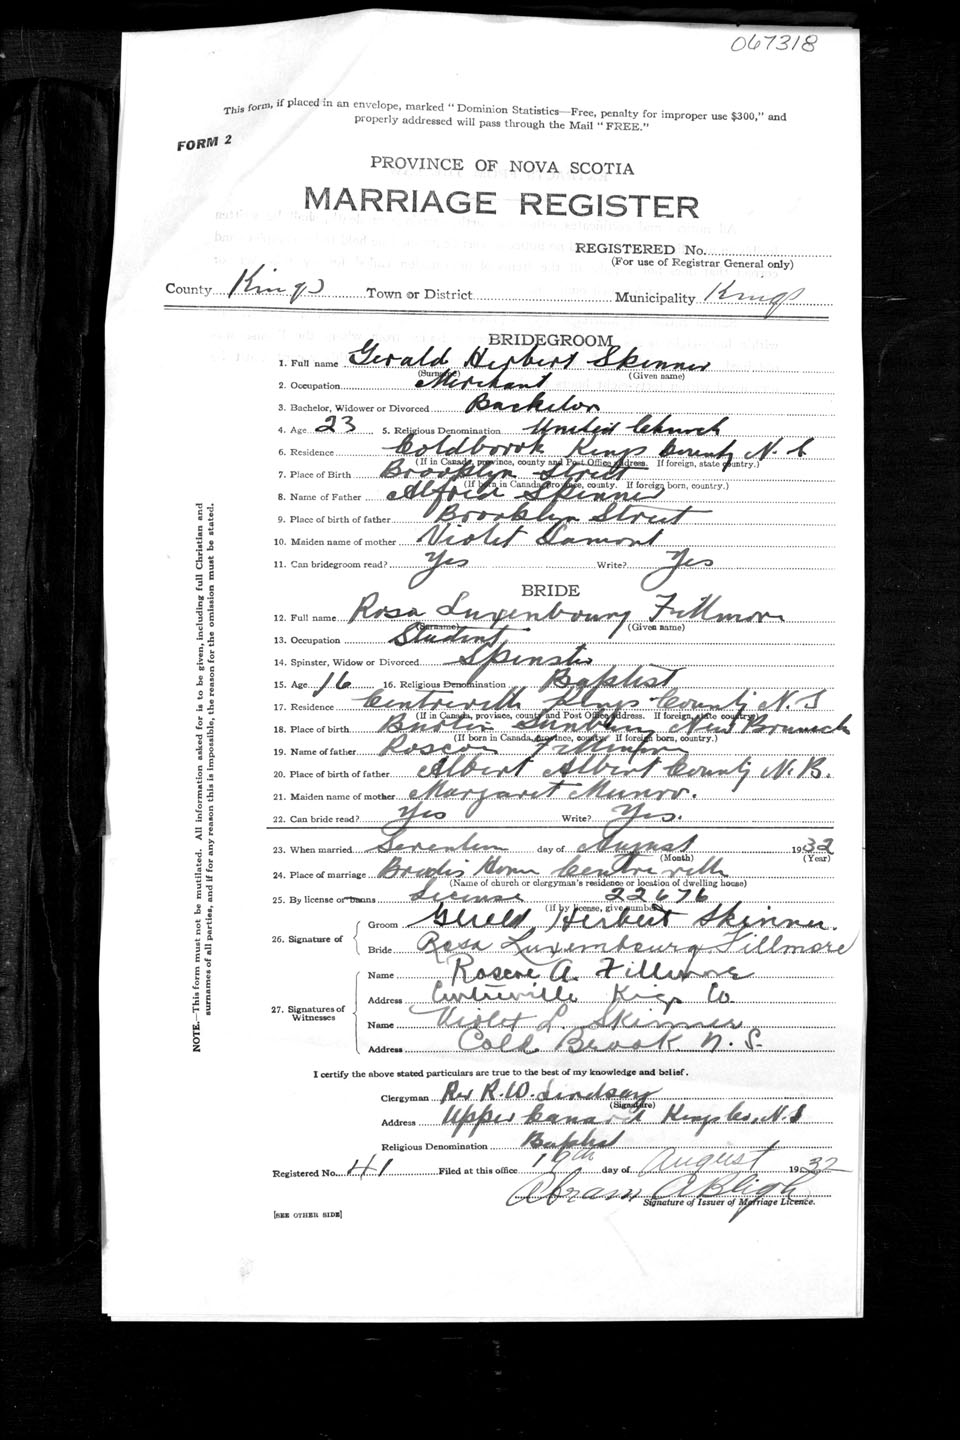 067318
This form, if placed in an envelope, marked "Dominion Statistics—Free, penalty for improper use $300," and
properly addressed will pass through the Mail "FREE."
FORM 2
PROVINCE OF NOVA SCOTIA
MARRIAGE REGISTER
REGISTERED No.
(For use of Registrar General only)
County Kings Town or District Municipality Kings
BRIDEGROOM
1. Full name Gerald Herbert Skinner
(Surname) (Given name)
2. Occupation Merchant
3. Bachelor, Widower or Divorced Bachelor
4. Age 23 5. Religious Denomination United Church
6. Residence Coldbrook Kings County N.S
(If in Canada, province, county and Post Office address. If foreign, state country.)
7. Place of Birth Brooklyn Street
(If born in Canada, province, county. If foreign born, country.)
8. Name of Father Alfred Skinner
9. Place of birth of father Brooklyn Street
10. Maiden name of mother Violet Lamont
11. Can bridegroom read? Yes Write? Yes
BRIDE
12. Full name Rosa Luxenbourg Fillmore
(Surname) (Given name)
13. Occupation Student
14. Spinster, Widow or Divorced Spinster
15. Age 16 16. Religious Denomination Baptist
17. Residence Centreville Kings County N.S
(If in Canada, province, county and Post Office address. If foreign, state country.)
18. Place of birth Burton Sunbury New Brunswick
(If born in Canada, province, county. If foreign born, country.)
19. Name of father Roscoe Fillmore
20. Place of birth of father Albert Albert County N.B.
21. Maiden name of mother Margaret Munro.
22. Can bride read? Yes Write? Yes.
23. When married Seventeen day of August 1932
(Month) (Year)
24. Place of marriage Brides Home Centreville
(Name of church or clergyman's residence or location of dwelling house)
25. By license or banns License 22676
(If by license, give number)
26. Signature of Groom Gerald Herbert Skinner
Bride Rosa Luxembourg Fillmore
27. Signatures of Witnesses Name Roscoe A. Fillmore
Address Centreville Kings Co
Name Violet L. Skinner
Address Cold Brook N.S.
I certify the above stated particulars are true to the best of my knowledge and belief.
Clergyman Rev R.W. Lindsay
(Signature)
Address Upper Canard Kings Co, N.S
Religious Denomination Baptist
Registered No. 41 Filed at this office 19th day of August 1932
Abram A Bligh
Signature of Issuer of Marriage Licence.
[SEE OTHER SIDE]
NOTE.—This form must not be mutilated. All information asked for is to be given, including full Christian and
surnames of all parties, and if for any reason this is impossible, the reason for the omission must be stated.